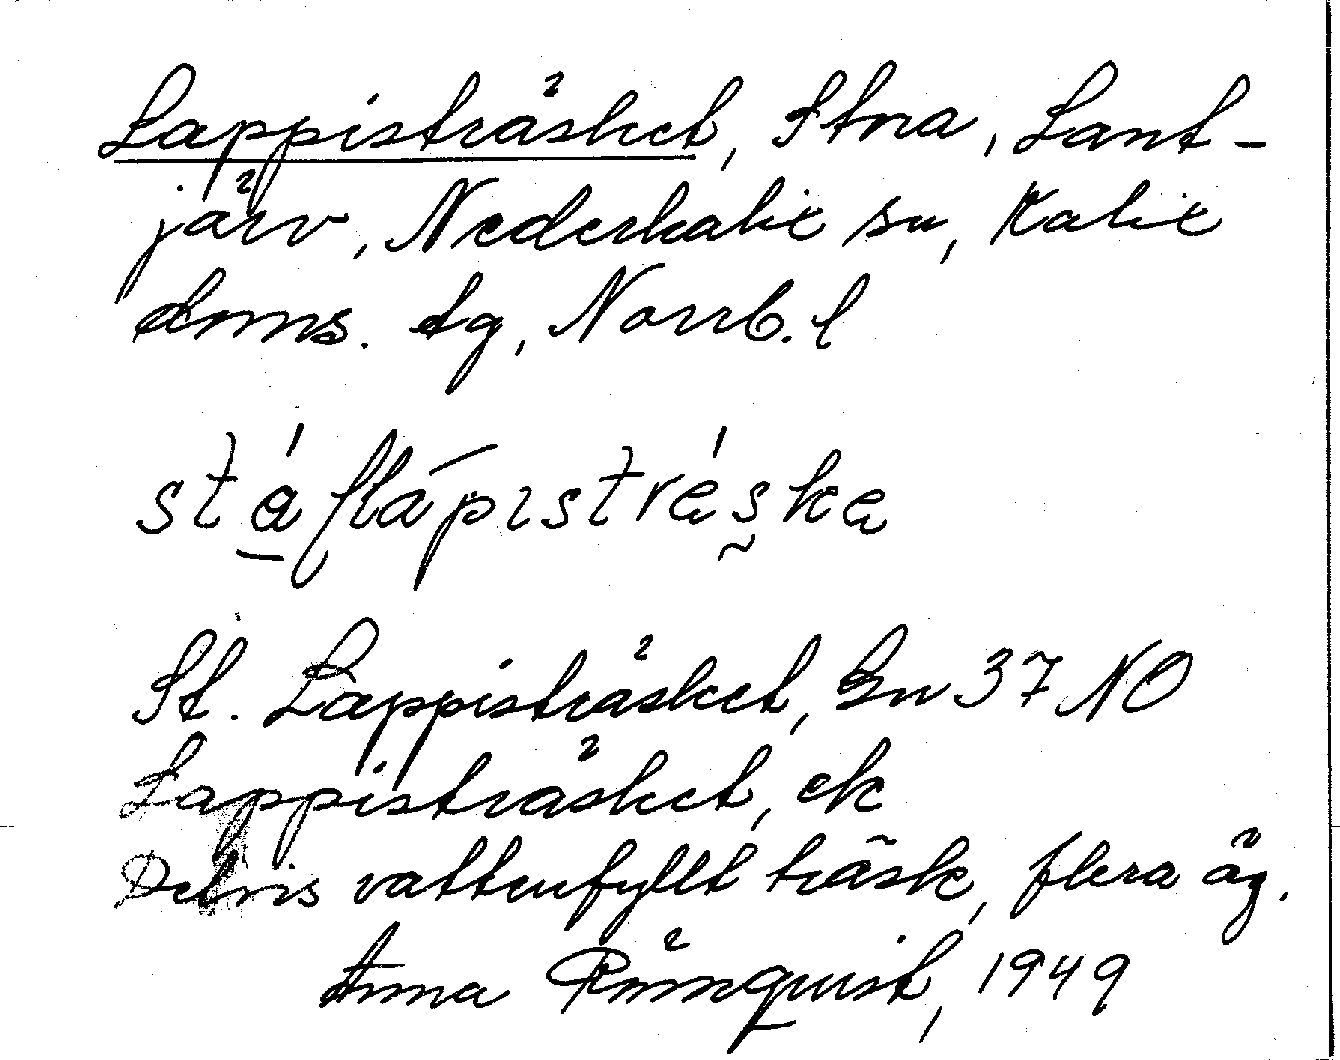 Lappisträsket, Stora, Lant-
järv, Nederkalix sn, Kalix
doms. tg, Norrb. l
stɑ́flápɪstrέske
St. Lappisträsket, Gn 37 NO
Lappisträsket, ek
Delvis vattenfyllt träsk, flera äg.
Anna Rönnquist, 1949